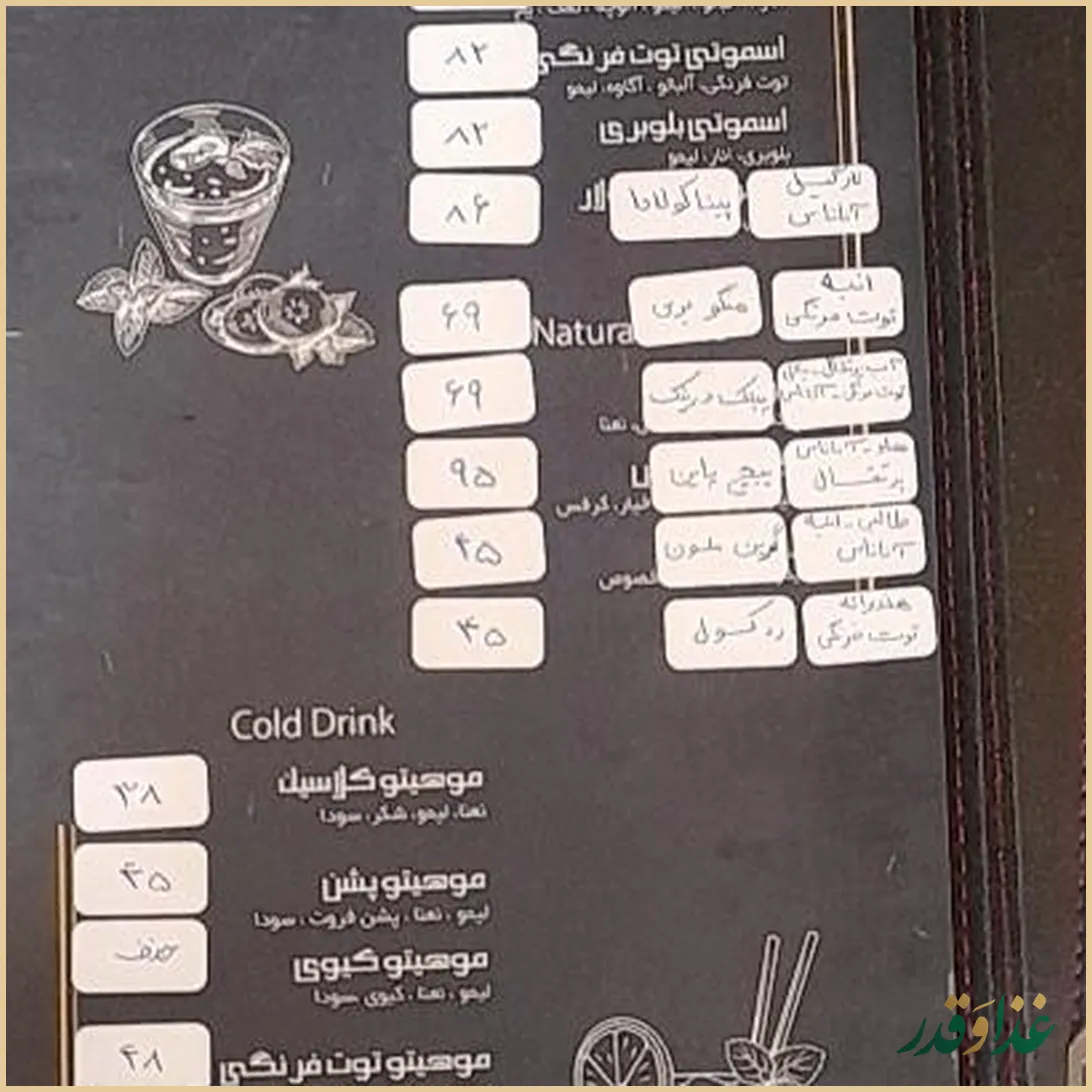 اسموتی توت فرنگی ۸۲
توت فرنگی، آلبالو، آگاوه، لیمو
اسموتی بلوبری ۸۲
بلوبری، انار، لیمو
نارگیل
آناناس
پینا کولادا ۸۶
Natura
انبه
توت فرنگی
منگو بری ۶۹
توت فرنگی - آناناس
پینک درینک ۶۹
، نعنا
هلو - آناناس
پرتقال
پیچ پاین ۹۵
خیار، کرفس
طالبی - انبه
آناناس
گرین ملون ۴۵
هندوانه
توت فرنگی
رد کول ۴۵
Cold Drink
موهیتو کلاسیک ۳۸
نعنا، لیمو، شکر، سودا
موهیتو پشن ۴۵
لیمو، نعنا، پشن فروت، سودا
موهیتو کیوی حذف
لیمو، نعنا، کیوی سودا
موهیتو توت فرنگی ۴۸
غذا و قدر